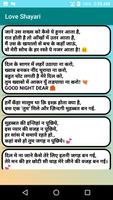 Love Shayari
जाने उस शख्स को कैसे ये हुनर आता है,
रात होती है तो आँखों में उतर आता है,
मैं उस के खयालो से बच के कहाँ जाऊं,
वो मेरी सोच के हर रस्ते पे नजर आता है।
दिल के सागर मे लहरे उठाया ना करो,
ख्वाब बनकर नींद चुराया ना करो,
बहुत चोट लगती है मेरे दिल को,
तुम ख्वाबो में आ कर यु तड़पाया ना करो.....
GOOD NIGHT DEAR
हमें कहां मालूम था कि इश्क होता क्या है..??
बस.....एक 'तुम' मिले और जिन्दगी.. मुहब्बत बन गई..
मुहब्बत की इन्तिहां न पूछिये,
इस प्यार की वजह न पूछिये,
हर सांस में समाये रहते हो तुम,
कहां बसे हो जगह ना पूछिये।
दिल में ना जाने कैसे तेरे लिए इतनी जगह बन गई,
तेरे मन की हर छोटी सी चाह मेरे जीने की वजह बन गई..